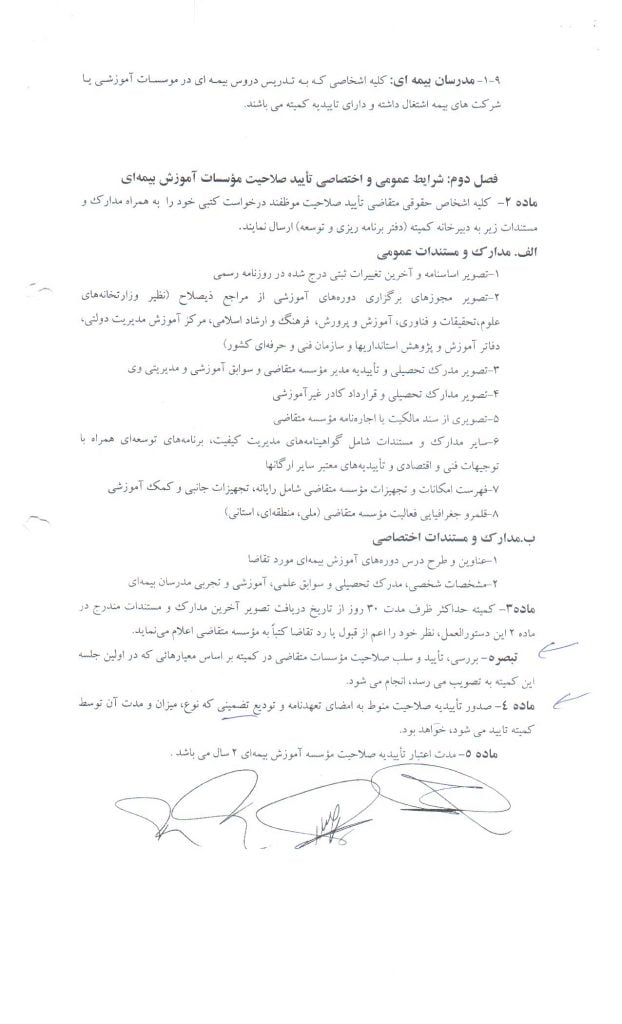 ۱-۹- مدرسان بیمه ای: کلیه اشخاصی که به تدریس دروس بیمه ای در موسسات آموزشی یا
شرکت های بیمه اشتغال داشته و دارای تاییدیه کمیته می باشند.
فصل دوم: شرایط عمومی و اختصاصی تأیید صلاحیت مؤسسات آموزش بیمه‌ای
ماده ۲- کلیه اشخاص حقوقی متقاضی تأیید صلاحیت موظفند درخواست کتبی خود را به همراه مدارک و
مستندات زیر به دبیرخانه کمیته (دفتر برنامه ریزی و توسعه) ارسال نمایند.
الف. مدارک و مستندات عمومی
۱-تصویر اساسنامه و آخرین تغییرات ثبتی درج شده در روزنامه رسمی
۲-تصویر مجوزهای برگزاری دوره‌های آموزشی از مراجع ذیصلاح (نظیر وزارتخانه‌های
علوم،تحقیقات و فناوری، آموزش و پرورش، فرهنگ و ارشاد اسلامی، مرکز آموزش مدیریت دولتی،
دفاتر آموزش و پژوهش استانداریها و سازمان فنی و حرفه‌ای کشور)
۳-تصویر مدرک تحصیلی و تأییدیه مدیر مؤسسه متقاضی و سوابق آموزشی و مدیریتی وی
۴-تصویر مدارک تحصیلی و قرارداد کادر غیرآموزشی
۵-تصویری از سند مالکیت یا اجاره‌نامه مؤسسه متقاضی
۶-سایر مدارک و مستندات شامل گواهینامه‌های مدیریت کیفیت، برنامه‌های توسعه‌ای همراه با
توجیهات فنی و اقتصادی و تأییدیه‌های معتبر سایر ارگانها
۷-فهرست امکانات و تجهیزات مؤسسه متقاضی شامل رایانه، تجهیزات جانبی و کمک آموزشی
۸-قلمرو جغرافیایی فعالیت مؤسسه متقاضی (ملی، منطقه‌ای، استانی)
ب.مدارک و مستندات اختصاصی
۱-عناوین و طرح درس دوره‌های آموزش بیمه‌ای مورد تقاضا
۲-مشخصات شخصی، مدرک تحصیلی و سوابق علمی، آموزشی و تجربی مدرسان بیمه‌ای
ماده۳- کمیته حداکثر ظرف مدت ۳۰ روز از تاریخ دریافت تصویر آخرین مدارک و مستندات مندرج در
ماده ۲ این دستورالعمل، نظر خود را اعم از قبول یا رد تقاضا کتباً به مؤسسه متقاضی اعلام می‌نماید.
تبصره- بررسی، تأیید و سلب صلاحیت مؤسسات متقاضی در کمیته بر اساس معیارهائی که در اولین جلسه
این کمیته به تصویب می رسد، انجام می شود.
ماده ۴- صدور تأییدیه صلاحیت منوط به امضای تعهدنامه و تودیع تضمینی که نوع، میزان و مدت آن توسط
کمیته تایید می شود، خواهد بود.
ماده ۵- مدت اعتبار تأییدیه صلاحیت مؤسسه آموزش بیمه‌ای ۲ سال می باشد .